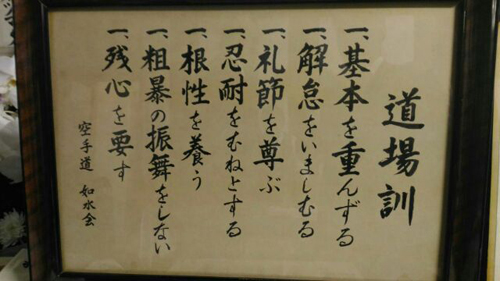 道場訓
一、基本を重んずる
一、解怠をいましむる
一、礼節を尊ぶ
一、忍耐をむねとする
一、根性を養う
一、粗暴の振舞をしない
一、残心を要す
空手道 如水会